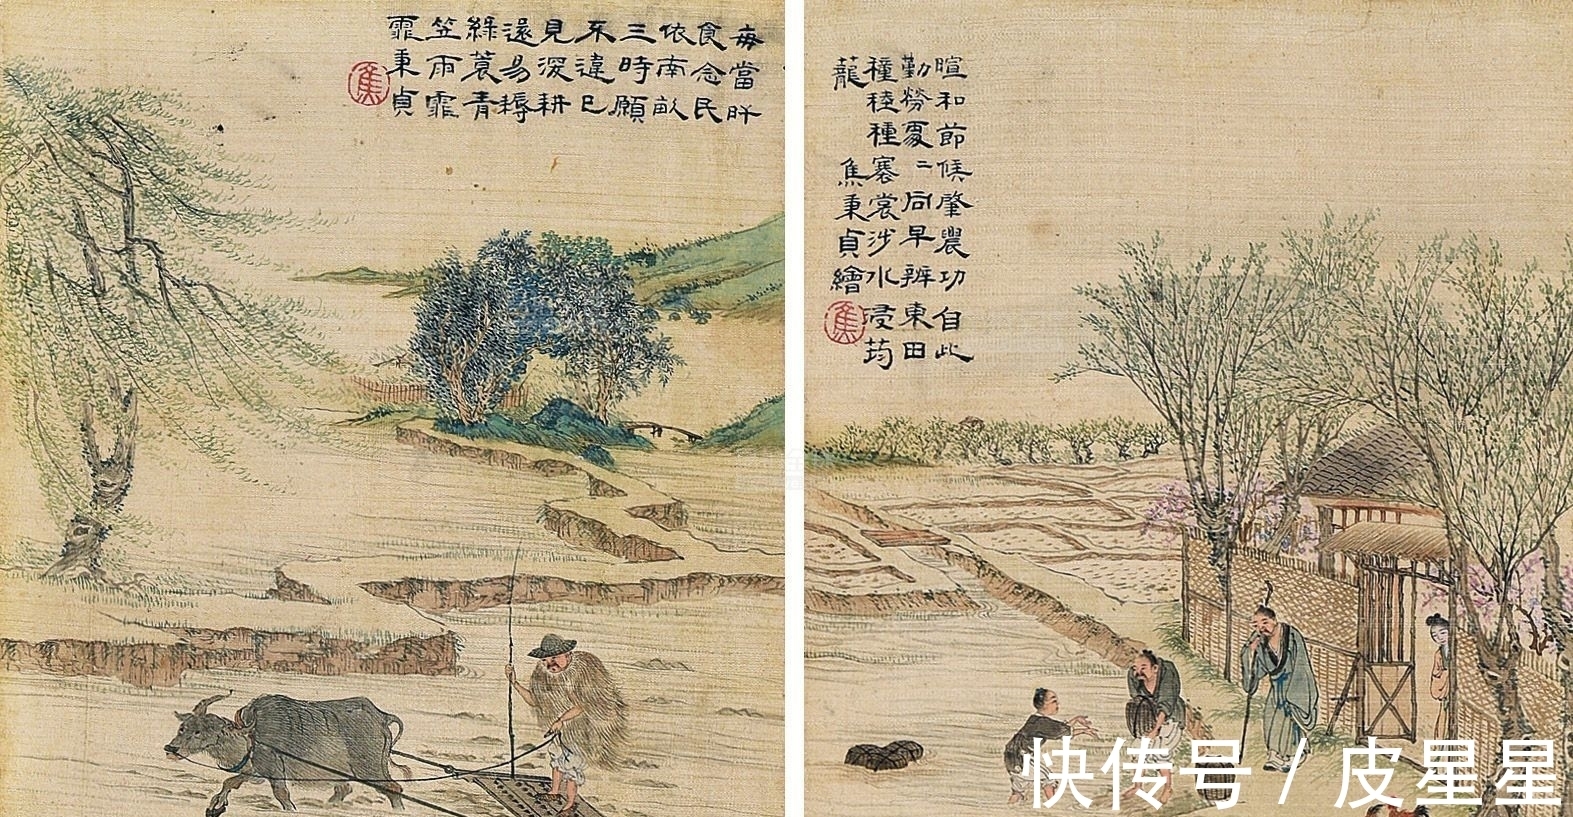 每當旰
食念民
依南畝
三時願
不違已
見深耕
還易耨
綠蓑青
笠雨霏
霏秉貞
焦
暄和節候肇農功自此
勤勞處二同早辨東田
種稑種褰裳涉水浸筠
籠 焦秉貞繪
焦
快传号 / 皮星星